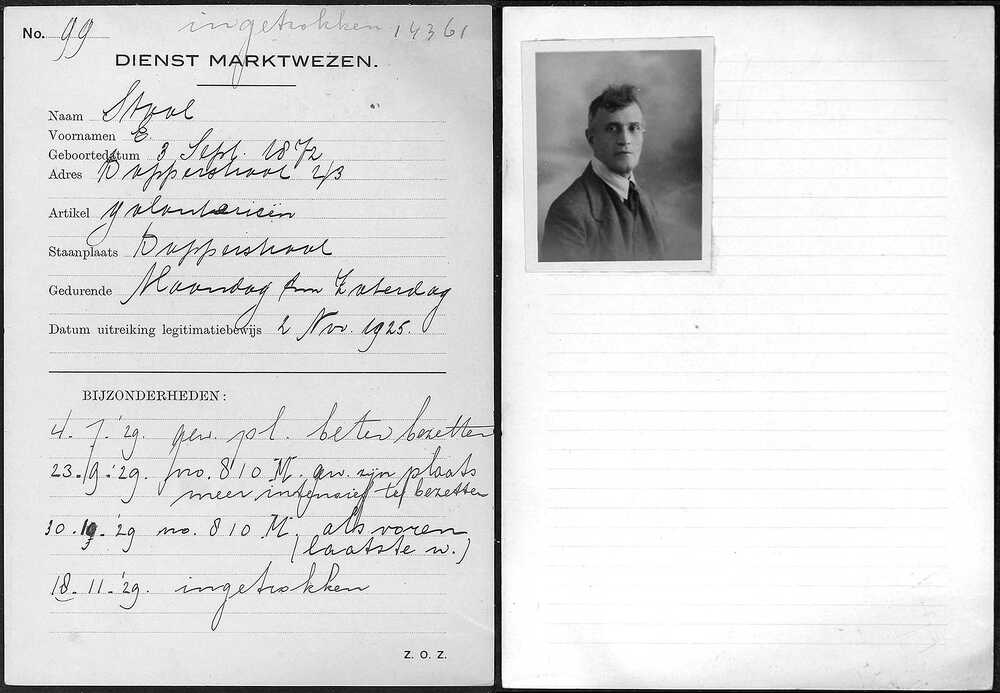 No. 99 ingetrokken 14361
DIENST MARKTWEZEN.
Naam Stool
Voornamen E.
Geboortedatum 3 Sept. 1872
Adres Dapperstraat 2/3
Artikel galanterieën
Staanplaats Dapperstraat
Gedurende Maandag t/m Zaterdag
Datum uitreiking legitimatiebewijs 2 Nov. 1925.
BIJZONDERHEDEN:
4. 7. '29. gew. pl. beter bezetten
23. 9. '29. no. 810 M. gew. zijn plaats
meer intensief te bezetten
30. '29 no. 810 M. als voren
(laatste w.)
18. 11. '29. ingetrokken
Z. O. Z.